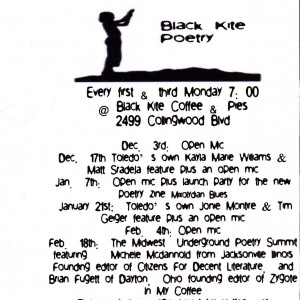 Black Kite
Poetry
Every first & third Monday 7:00
@ Black Kite Coffee & Pies
2499 Collingwood Blvd
Dec. 3rd: Open Mic
Dec. 17th Toledo's own Kayla Marie Williams &
Matt Sradeja feature plus an open mic
Jan. 7th: Open mic plus launch party for the new
poetry zine Maumee Blues
January 21st: Toledo's own Jonie Montre & Tim
Geiger feature plus an open mic
Feb. 4th: Open mic
Feb. 18th: The Midwest Underground Poetry Summit
featuring Michele Mcdannold from Jacksonville Illinois
Founding editor of Citizens For Decent Literature and
Brian Fugett of Dayton Ohio founding editor of Zygote
in My Coffee